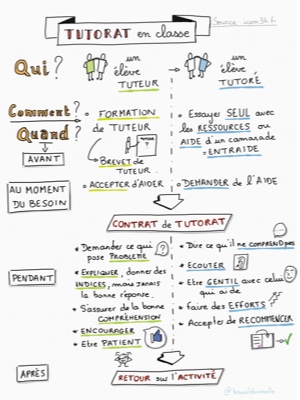 Source : icem34.fr
TUTORAT en classe
Qui ?
un élève TUTEUR
un élève TUTORÉ
Comment ?
Quand ?
• FORMATION de TUTEUR
BREVET de TUTEUR
• Essayer SEUL avec les RESSOURCES ou AIDE d'un camarade = ENTRAIDE
AVANT
AU MOMENT DU BESOIN
• ACCEPTER d'AIDER
• DEMANDER de l'AIDE
CONTRAT de TUTORAT
PENDANT
• Demander ce qui pose PROBLÈME
• EXPLIQUER, donner des INDICES, mais jamais la bonne réponse.
• S'assurer de la bonne COMPRÉHENSION
• ENCOURAGER
• Etre PATIENT
• Dire ce qu'il ne COMPREND pas
• ECOUTER
• Etre GENTIL avec celui qui aide
• faire des EFFORTS
• Accepter de RECOMMENCER
APRÈS
RETOUR sur l'ACTIVITÉ